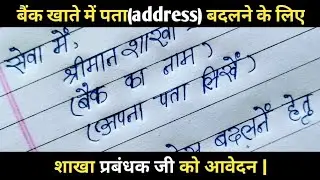 बैंक खाते में पता(address) बदलने के लिए
सेवा में,
श्रीमान शाखा
(बैंक का नाम)
(अपना पता लिखें)
बदलनें हेतु
शाखा प्रबंधक जी को आवेदन |